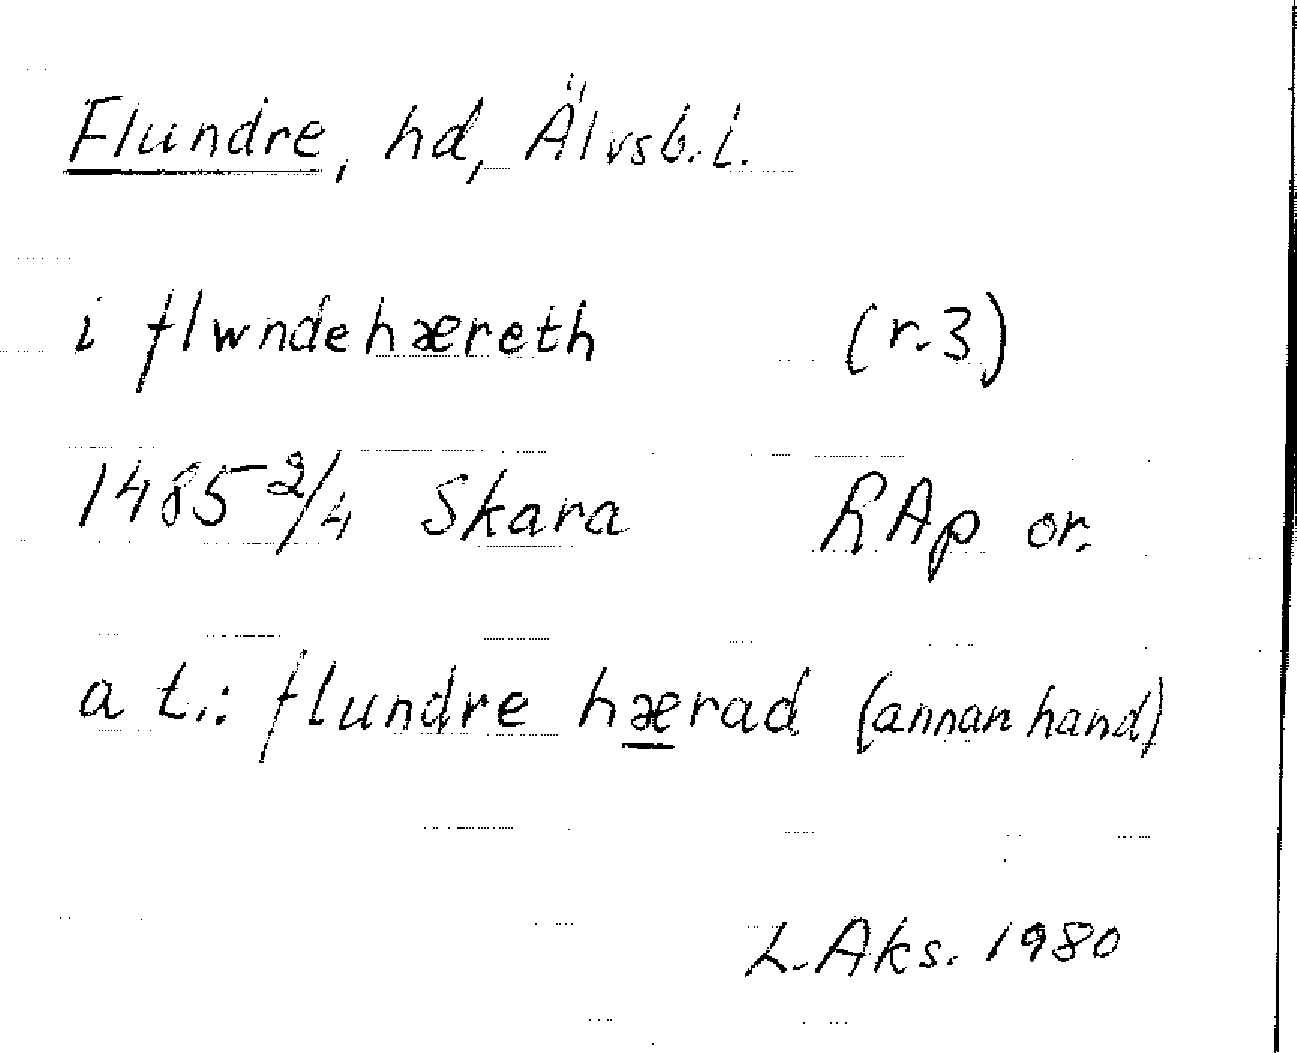 Flundre, hd, Älvsb. l.
i flwndehæreth (r. 3)
1485 2/4 Skara RAp or.
a t.: flundre hærad (annan hand)
L. Aks. 1980